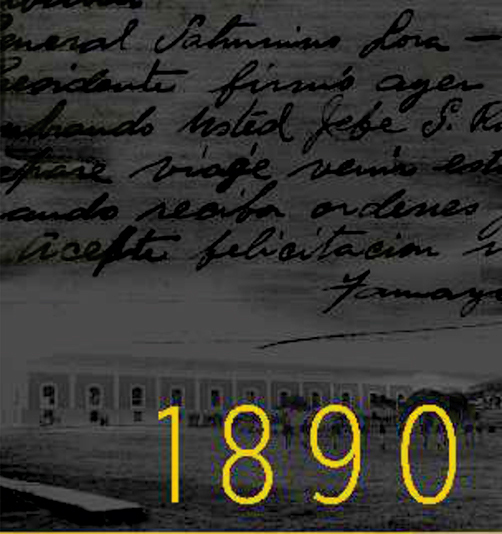 eneral Saturnino Lora —
esidente firmó ayer
mbrando Usted Jefe S. R
pare viage venir est
ando reciba ordenes
Acepte felicitacion
Tamayo
1890